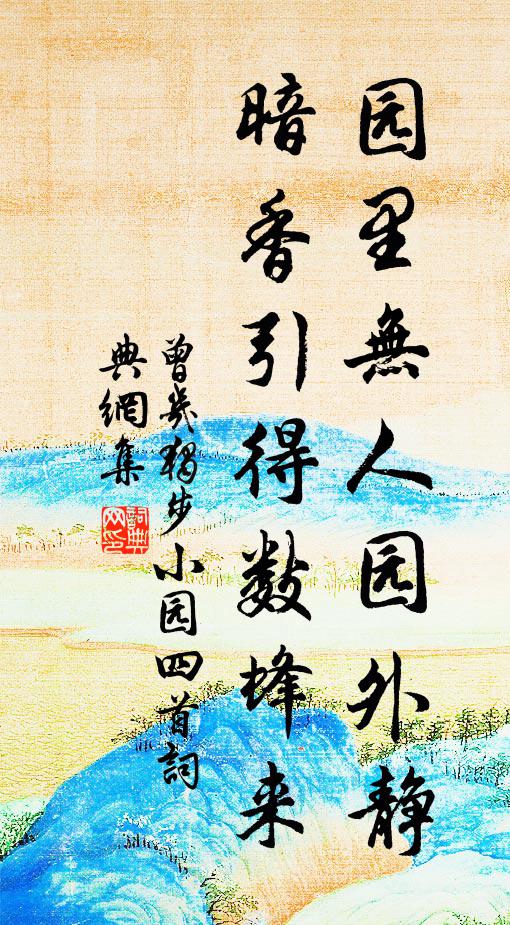 园里無人园外静
暗香引得数蜂来
曾幾独步小园四首詞
典網集
詞典
网印